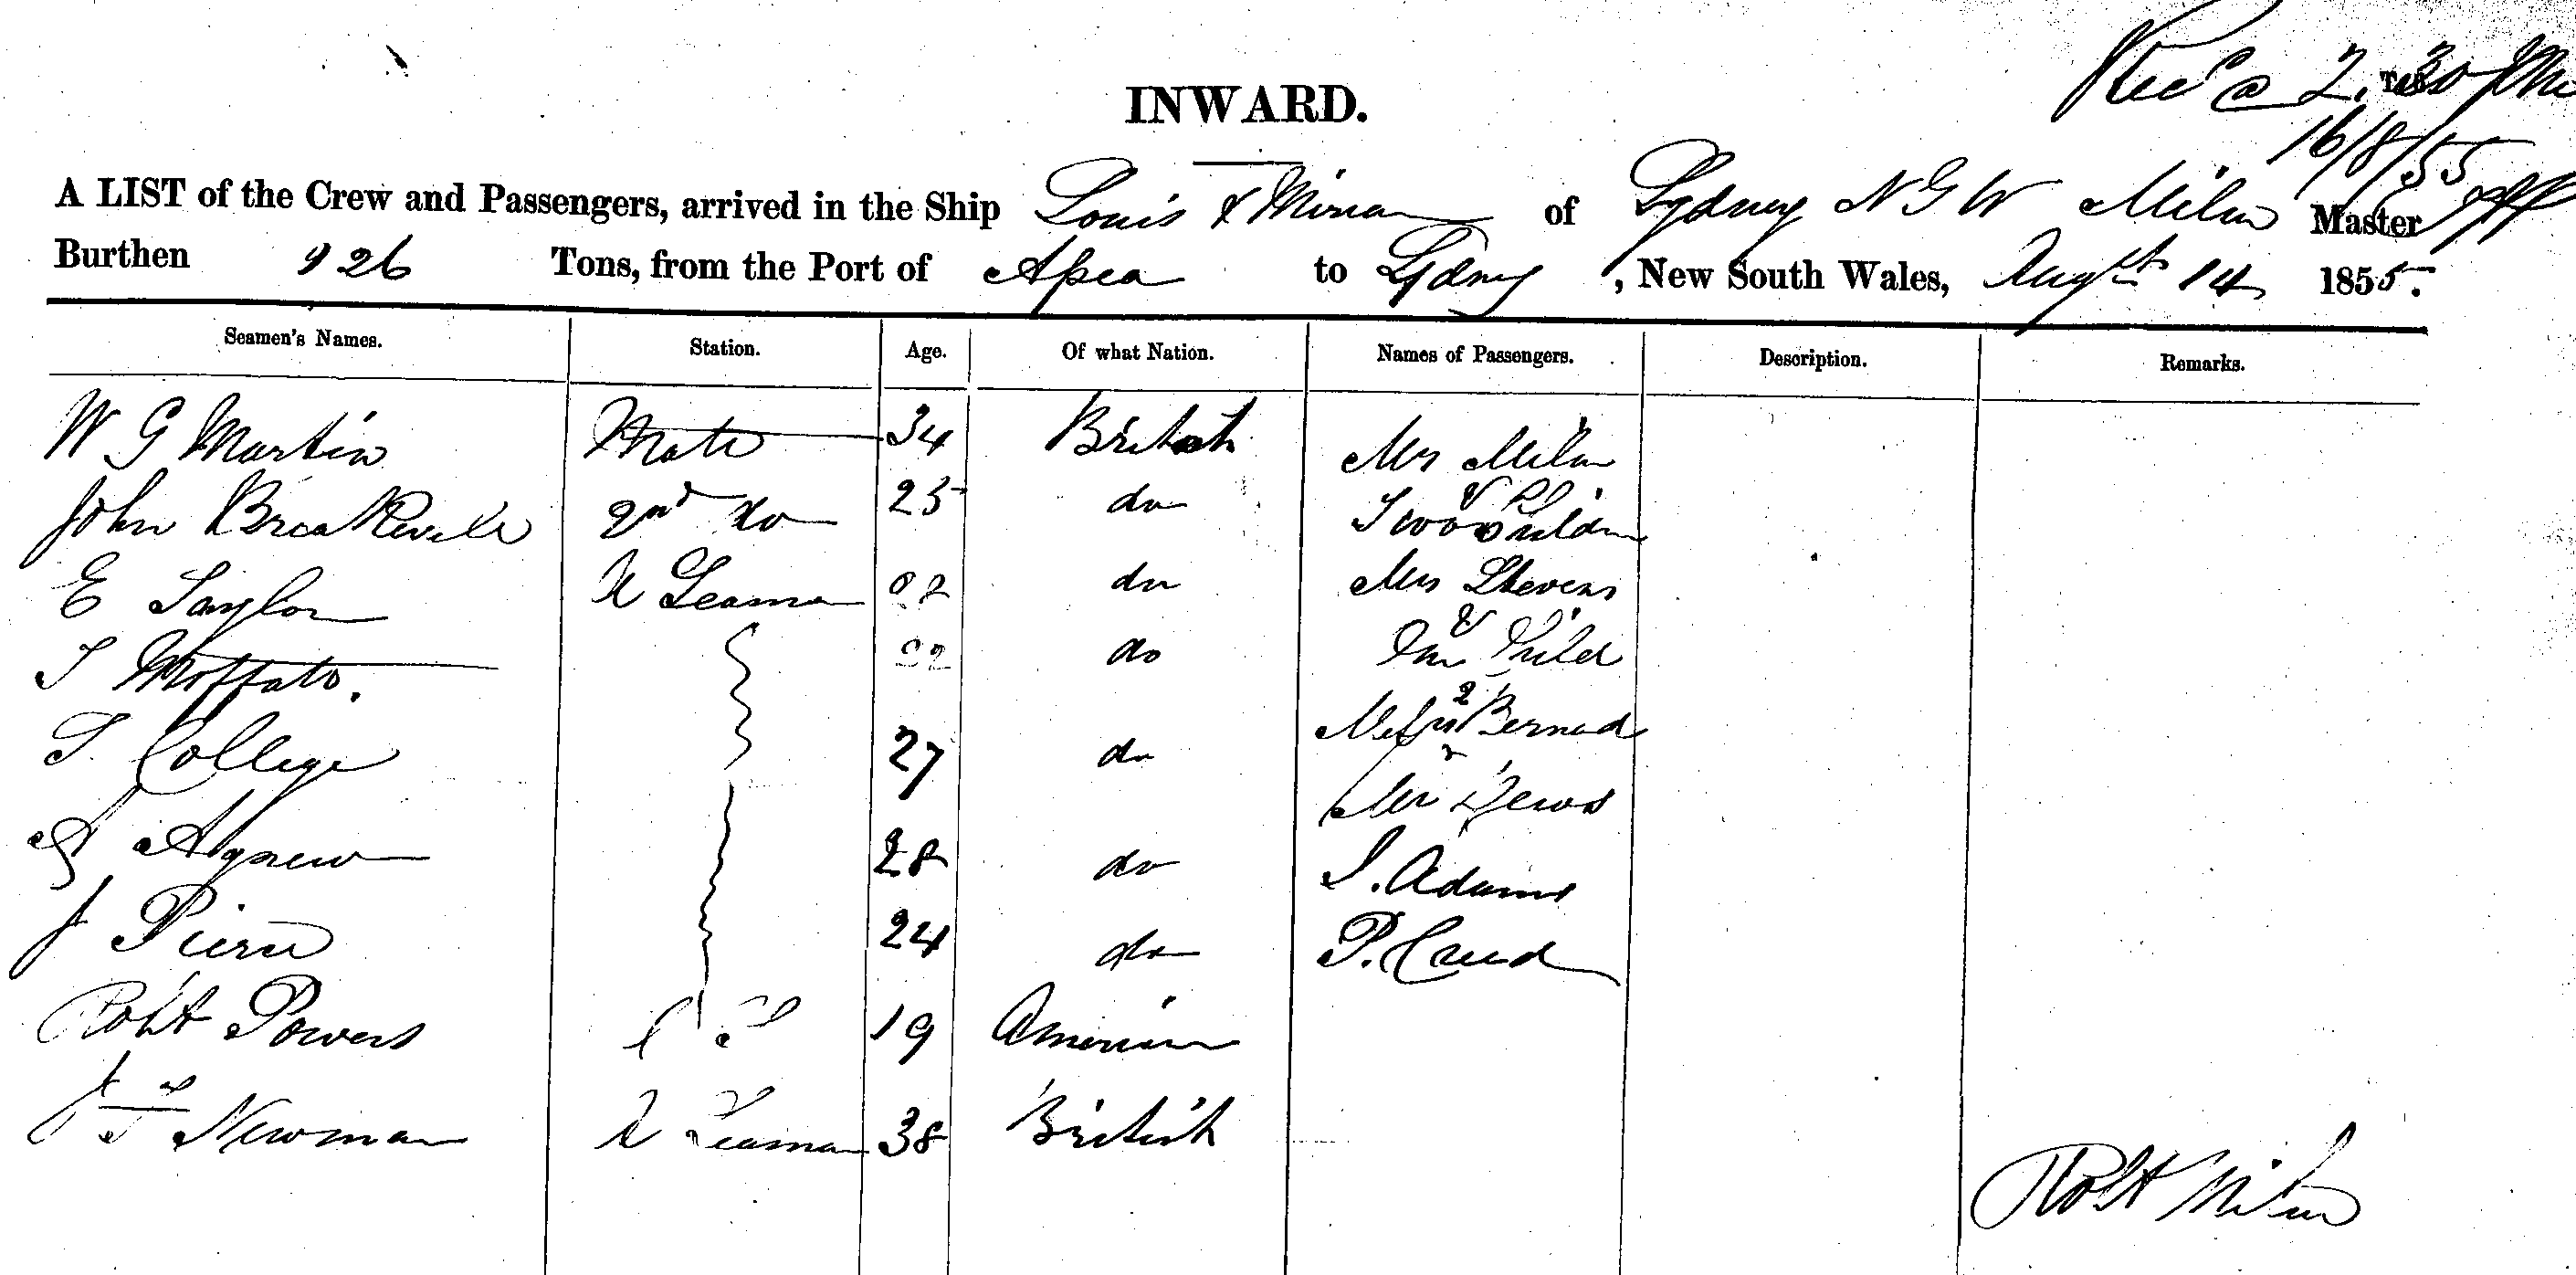 Rec'd @ 2.30 PM
16/8/55
INWARD.
A LIST of the Crew and Passengers, arrived in the Ship Louis & Miriam of Sydney NSW Milne Master
Burthen 126 Tons, from the Port of Apia to Sydney, New South Wales, Augst 14 1855.
Seamen's Names. Station. Age. Of what Nation. Names of Passengers. Description. Remarks.
W G Martin Mate 34 British Mrs Milne
John Breakwell 2nd do 25 do & Two Children
E Taylor A Seaman 22 do Mrs Stevens
T Moffato. 22 do & One Child
T. College 27 do Bernard
A Agnew 28 do Mr Dews
J. Adams
J Pierre 24 do P. Creed
Robt Powers 19 American
J T Newman A Seaman 38 British
Robt Milne